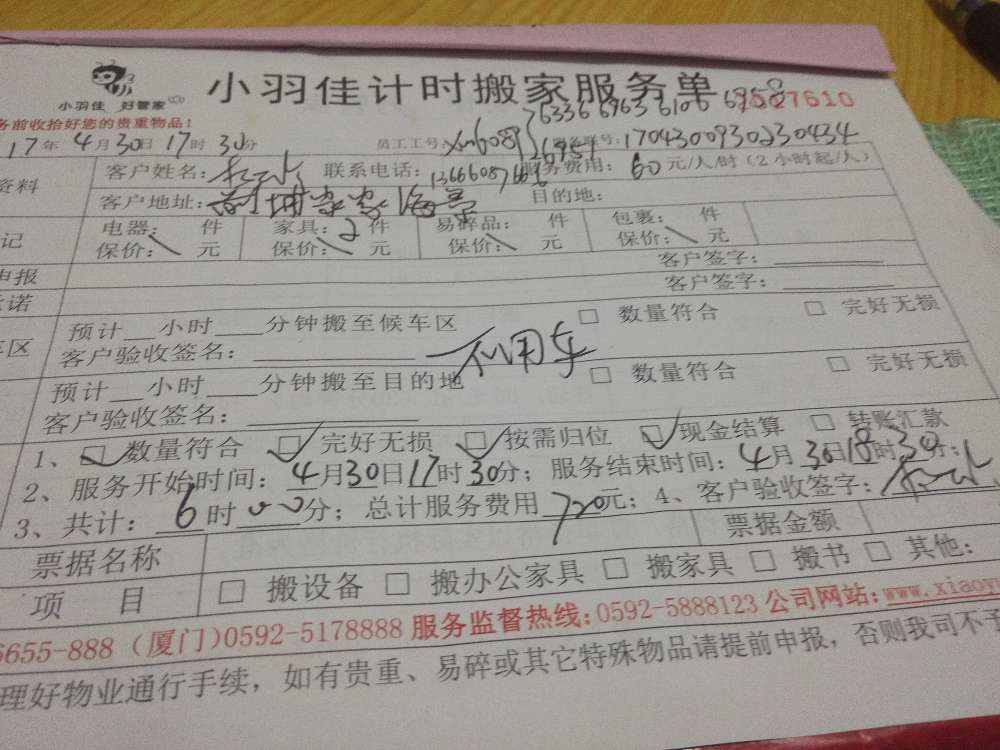 小羽佳计时搬家服务单
小羽佳 好管家
务前收拾好您的贵重物品!
17年4月30日17时30分 员工工号: 服务联号:170430093023 0434
资料 客户姓名: 联系电话: 服务费用:60元/人/时(2小时起/人)
客户地址: 目的地:
记 电器: 件 家具:2件 易碎品: 件 包裹: 件
保价: 元 保价: 元 保价: 元 保价: 元
申报 客户签字:
诺 客户签字:
车区 预计 小时 分钟搬至候车区 □ 数量符合 □ 完好无损
客户验收签名: 不用车
预计 小时 分钟搬至目的地 □ 数量符合 □ 完好无损
客户验收签名:
1、☑数量符合 ☑完好无损 ☑按需归位 ☑现金结算 □ 转账汇款
2、服务开始时间:4月30日17时30分;服务结束时间:4月30日18时30分;
3、共计:6时00分;总计服务费用720元;4、客户验收签字:
票据名称 票据金额
项 目 □ 搬设备 □ 搬办公家具 □ 搬家具 □ 搬书 □ 其他:
6655-888(厦门)0592-5178888 服务监督热线:0592-5888123 公司网站:www.xiaoy
理好物业通行手续,如有贵重、易碎或其它特殊物品请提前申报,否则我司不予